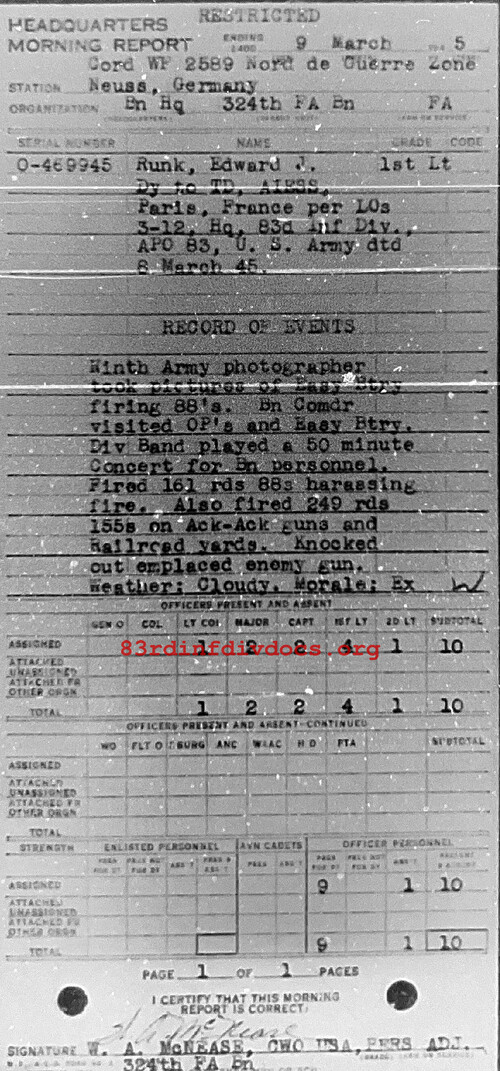 RESTRICTED
HEADQUARTERS
MORNING REPORT ENDING 2400 9 March 194 5
Cord WF 2589 Nord de Guerre Zone
STATION Neuss, Germany
ORGANIZATION Bn Hq 324th FA Bn FA
SERIAL NUMBER NAME GRADE CODE
O-469945 Runk, Edward J. 1st Lt
Dy to TD, AIESS,
Paris, France per LOs
3-12, Hq, 83d Inf Div.,
APO 83, U. S. Army dtd
8 March 45.
RECORD OF EVENTS
Ninth Army photographer
took pictures of Easy Btry
firing 88's. Bn Comdr
visited OP's and Easy Btry.
Div Band played a 50 minute
Concert for Bn personnel.
Fired 161 rds 88s harassing
fire. Also fired 249 rds
155s on Ack-Ack guns and
Railroad yards. Knocked
out emplaced enemy gun.
Weather: Cloudy. Morale: Ex W
OFFICERS PRESENT AND ABSENT
GEN O COL LT COL MAJOR CAPT 1ST LT 2D LT SUBTOTAL
ASSIGNED 1 2 2 4 1 10
83rdinfdivdocs.org
ATTACHED UNASSIGNED
ATTACHED FR OTHER ORGN
TOTAL 1 2 2 4 1 10
OFFICERS PRESENT AND ABSENT-CONTINUED
WO FLT O ANC WAAC H D PTA SUBTOTAL
ASSIGNED
ATTACHED UNASSIGNED
ATTACHED FR OTHER ORGN
TOTAL
STRENGTH ENLISTED PERSONNEL AVN CADETS OFFICER PERSONNEL
PRES FOR DY PRES NOT FOR DY ABS'T PRES & ABS'T PRES ABS'T PRES FOR DY PRES NOT FOR DY ABS'T PRESENT & ABSENT
ASSIGNED 9 1 10
ATTACHED UNASSIGNED
ATTACHED FR OTHER ORGN
TOTAL 9 1 10
PAGE 1 OF 1 PAGES
I CERTIFY THAT THIS MORNING
REPORT IS CORRECT:
W. A. McNease
SIGNATURE W. A. McNEASE, CWO USA, PERS ADJ.
324th FA Bn